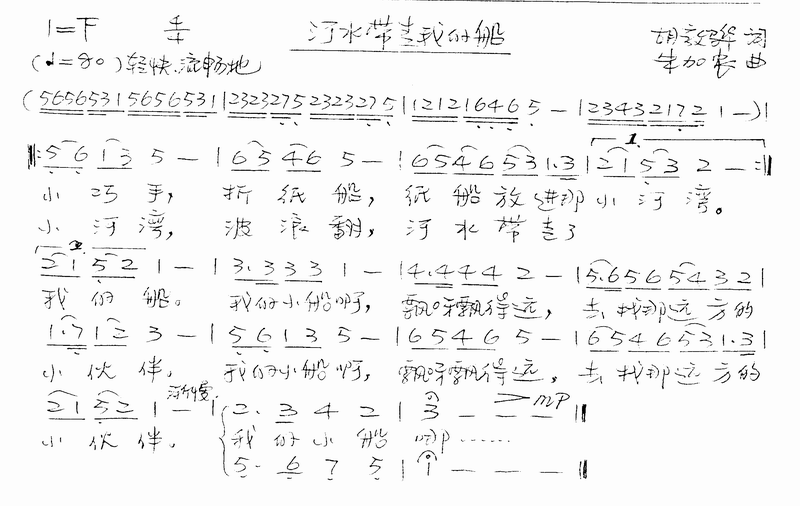 1=F 4/4 河水带走我的船 胡敦骅 词
(♩=80) 轻快、流畅地 牛加农 曲
(5656531 5656531|2323275 2323275|1212 1646 5 -|2343 2172 1 -)|
‖:56 13 5 -|65 46 5 -|6546 53 1.3|1. 21 53 2 -:‖
小 巧 手, 折 纸 船, 纸 船 放 进那 小 河 湾。
小 河 湾, 波 浪 翻, 河 水 带 走了
2. 21 52 1 -|3.3 33 1 -|4.4 44 2 -|5.656 54 32|
我 的 船。 我的小船啊, 飘呀飘得远, 去 找那远 方的
1.7 12 3 -|56 13 5 -|65 46 5 -|6546 53 1.3|
小 伙 伴, 我的小船啊, 飘呀飘得远, 去 找那远 方的
21 52 1 -|渐慢 2. 3 4 2|3 - - - mp‖
小 伙 伴。 我 的 小 船 哪……
5. 6 7 5|1 - - -‖